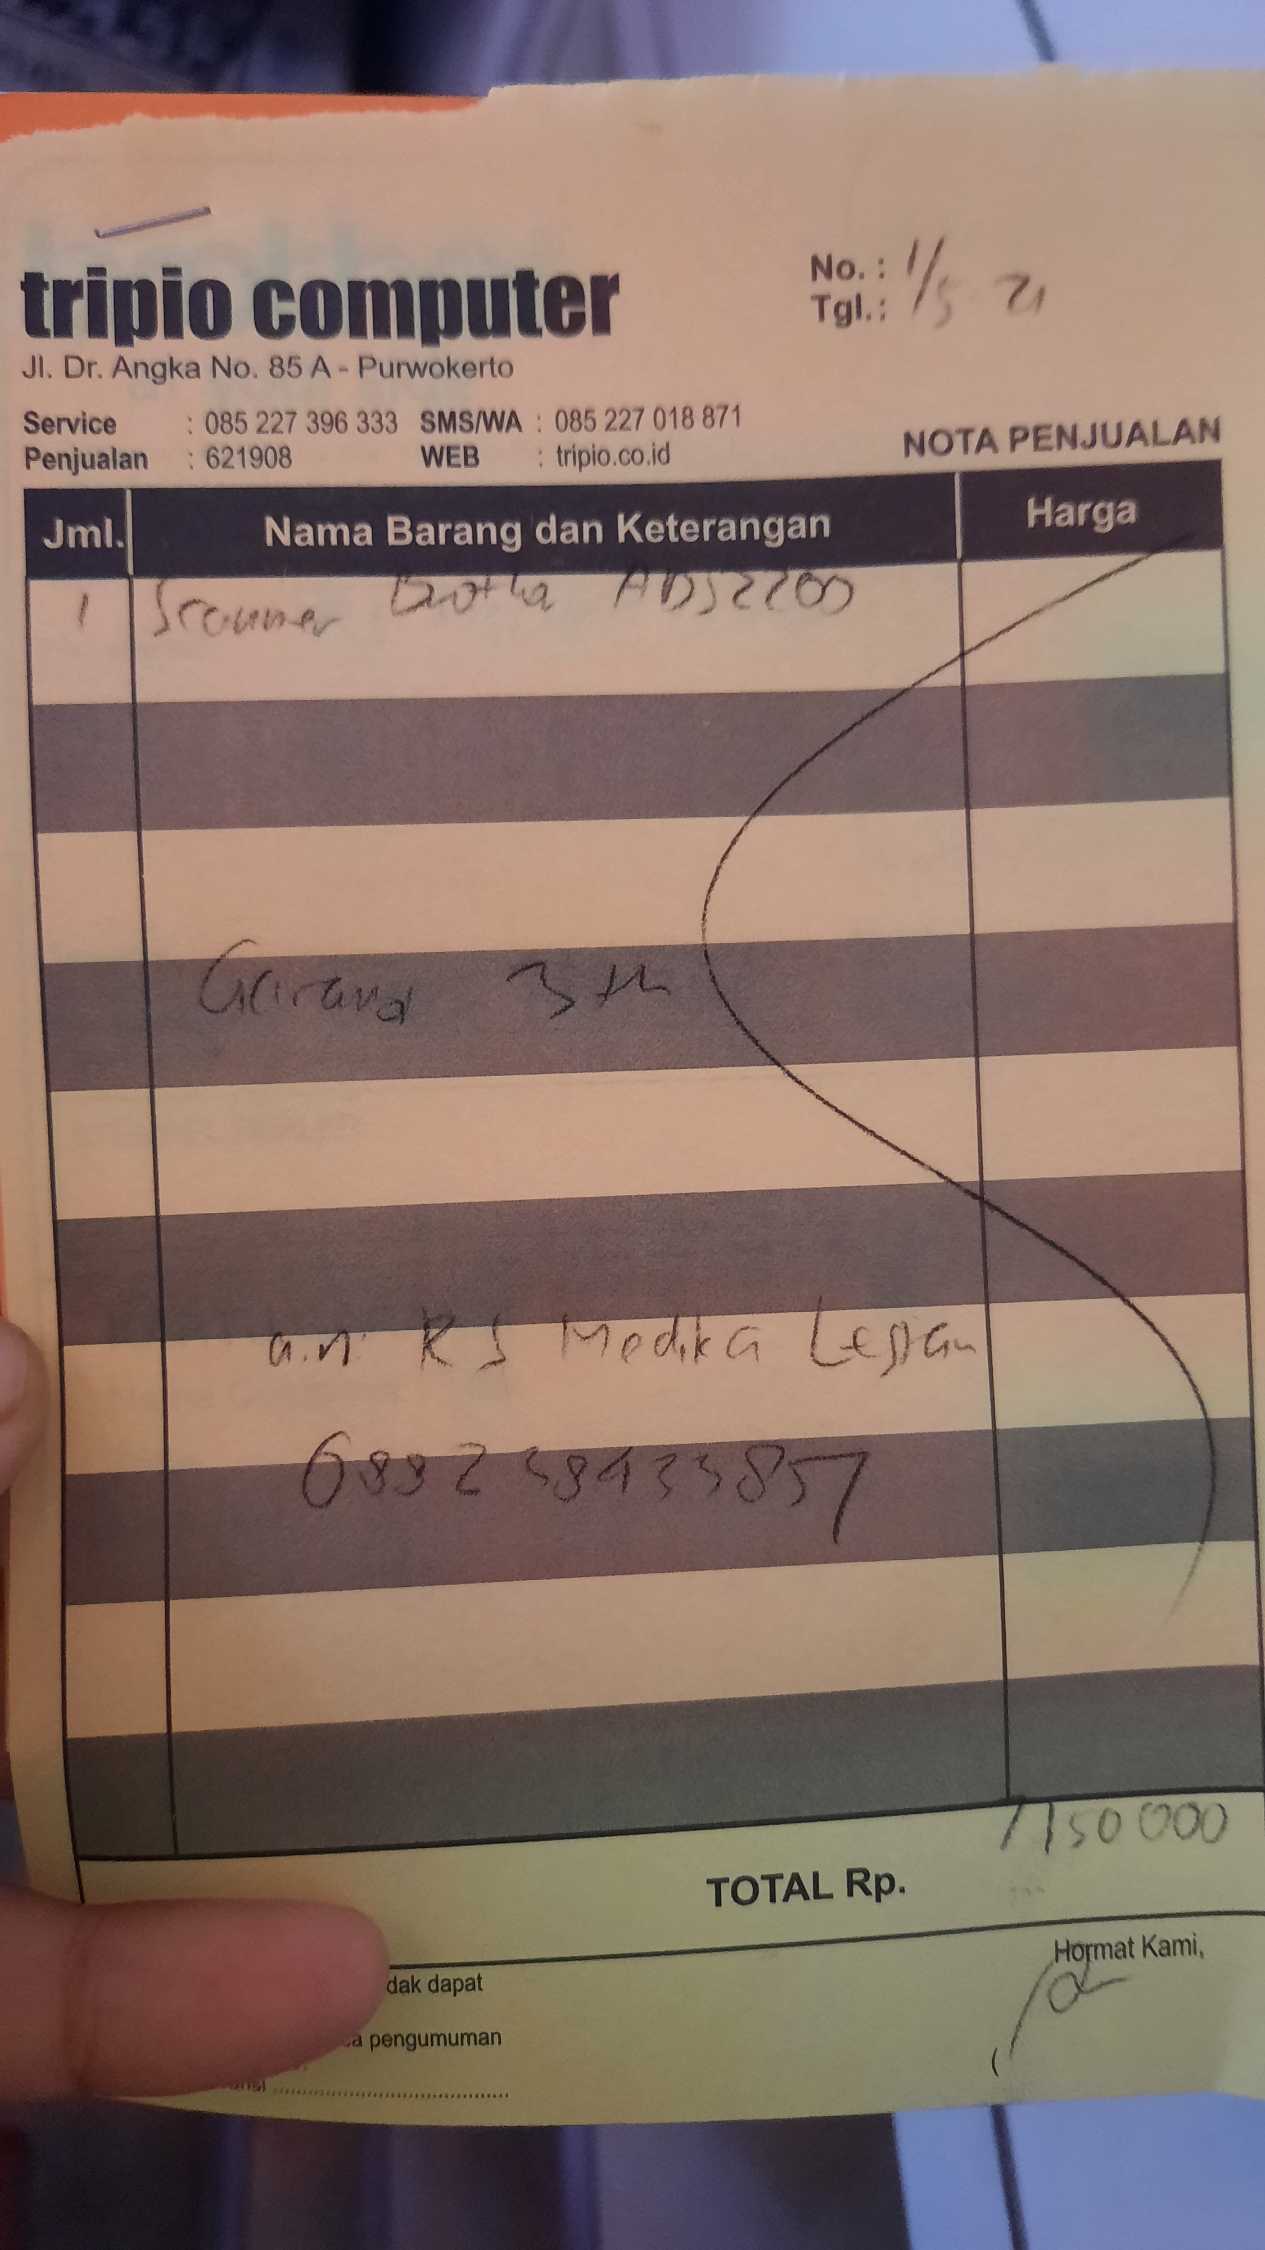 tripio computer
Jl. Dr. Angka No. 85 A - Purwokerto
No. :
Tgl.: 1/5 21
Service : 085 227 396 333 SMS/WA : 085 227 018 871
Penjualan : 621908 WEB : tripio.co.id
NOTA PENJUALAN
Jml. Nama Barang dan Keterangan Harga
1 Scanner ADS2200
Garansi 3 th
a.n. RS Medika Lestari
TOTAL Rp. 7150 000
Hormat Kami,
dak dapat
pengumuman